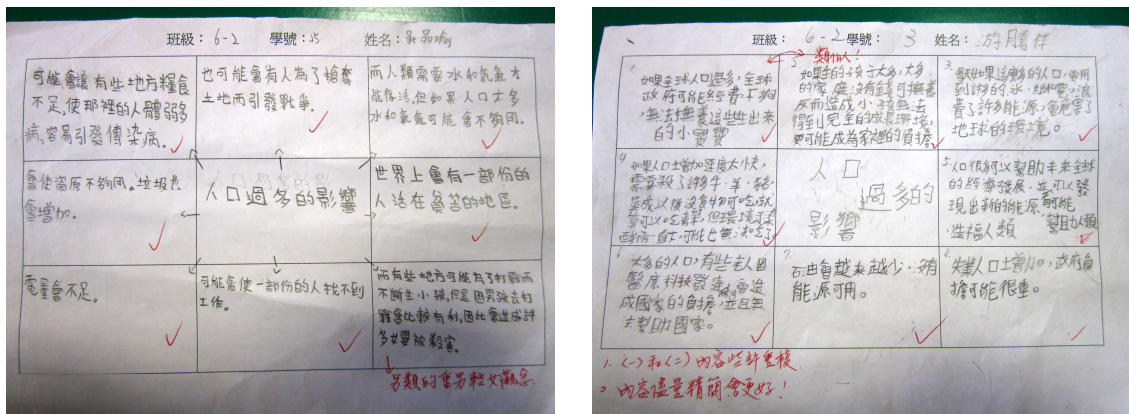 班級： 6-2 學號：25 姓名：吳
可能會讓有些地方糧食
不足,使那裡的人體弱多
病,容易引發傳染病。
也可能會有人為了搶奪
土地而引發戰爭。
而人類需要水和氧氣才
能存活,但如果人口太多
水和氧氣可能會不夠用。
會使資原不夠用。垃圾也
會增加。
人口過多的影響
世界上會有一部份的
人活在貧苦的地區。
電量會不足。
可能會使一部份的人找不到
工作。
而有些地方可能為了打戰而
不斷生小孩,但是因男孩去打
戰會比較有利,因此會造成許
多女嬰被殺害。
另類的重男輕女觀念
班級： 6-2 學號： 3 姓名：游騰祥
類似！
1.
如果全球人口過多,全球
政府可能經費不夠
,無法撫養這些生出來
的小寶寶
2.
如果生的孩子太多,太多
的家庭沒有錢可撫養
反而造成小孩無法
得到完全的成長環境,
更可能成為家裡的負擔
3.
如果這麼多的人口,要用
到許多的水,
費了許多能源,會危害了
地球的環境。
4.
如果人口增加速度太快,
需要殺了許多牛、羊、豬,
人口
過多的
影響
5.
人口很多可以幫助未來全球
的經濟發展,並可以發
現出新的能源,
造福人類
6.
太多的人口,有些老人因
醫療科技發達,會造
成國家的負擔,並且無
法幫助國家。
7.
石油會越來越少…沒有
能源可用。
8.
失業人口增加,政府負
擔可能很重。
1. (一)和(二)內容些許重複
2. 內容儘量精簡會更好！